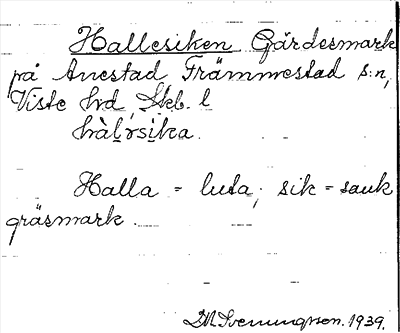 Hallesiken Gärdesmark
på Anestad Främmestad s:n,
Viste hd, Skb. l
hàl̥rsi̥ka.
Halla = luta; sik = sank
gräsmark.
D.M. Svenungsson. 1939.